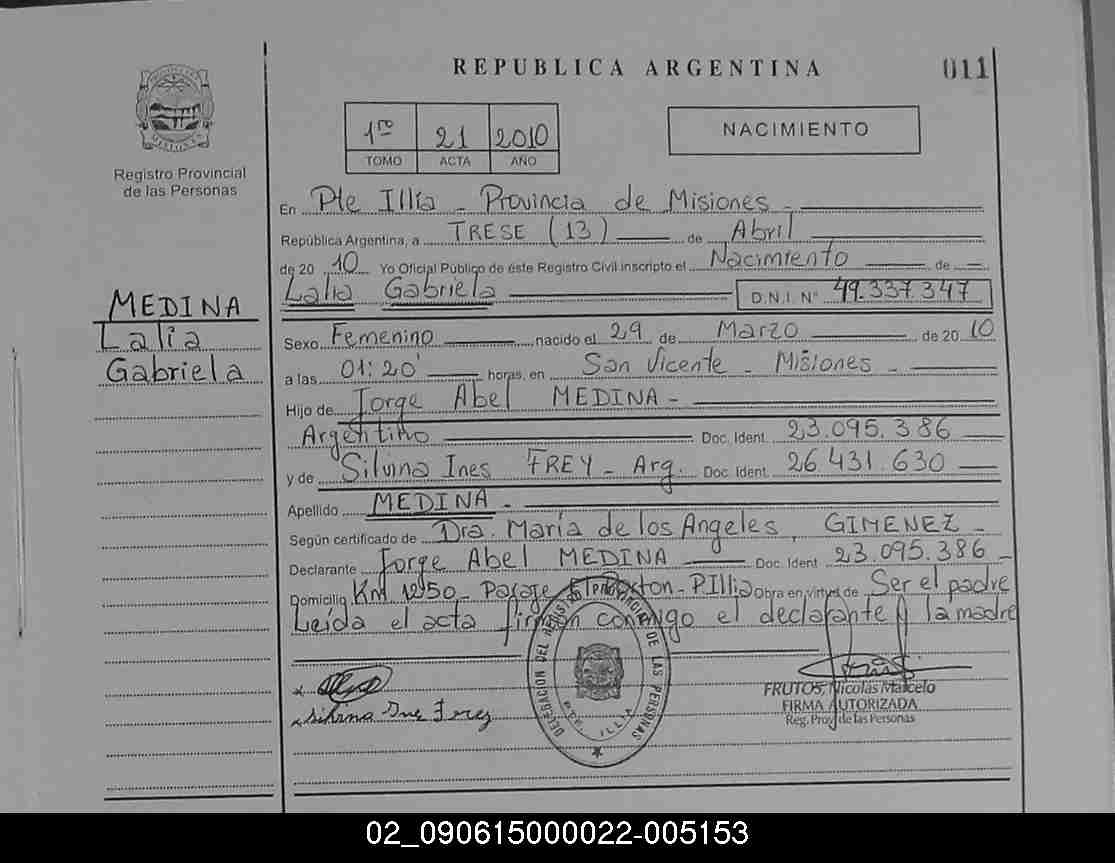 REPUBLICA ARGENTINA
011
1ro 21 2010
TOMO ACTA AÑO
NACIMIENTO
Registro Provincial
de las Personas
MEDINA
Lalia
Gabriela
En Pte Illía - Provincia de Misiones -
República Argentina, a TRESE (13) de Abril
de 20 10 Yo Oficial Público de éste Registro Civil inscripto el Nacimiento de
Lalia Gabriela D.N.I. N° 49.337.347
Sexo Femenino nacido el 29 de Marzo de 20 10
a las 01:20' horas, en San Vicente - Misiones -
Hijo de Jorge Abel MEDINA -
Argentino Doc. Ident. 23.095.386
y de Silvina Ines FREY - Arg. Doc. Ident. 26.431.630
Apellido MEDINA -
Según certificado de Dra. María de los Angeles, GIMENEZ -
Declarante Jorge Abel MEDINA Doc. Ident 23.095.386 -
Domicilio Km 1250 - Pasaje - P.Illia Obra en virtud de Ser el padre
Leída el acta firman conmigo el declarante y la madre
DELEGACION DEL REGISTRO PROVINCIAL DE LAS PERSONAS
PDTE. ILLIA
Silvina Ine Frey
FRUTOS, Nicolás Marcelo
FIRMA AUTORIZADA
Reg. Prov. de las Personas
02_090615000022-005153